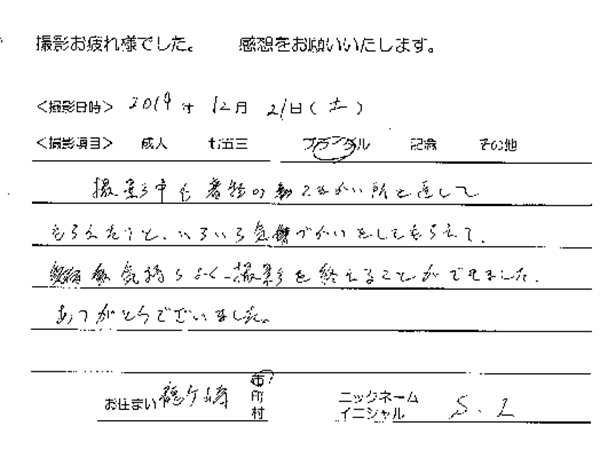 撮影お疲れ様でした。 感想をお願いいたします。
<撮影日時> 2019年 12月 21日(土)
<撮影項目> 成人 七五三 ブライダル 記念 その他
撮影中も着物の細かい所を直して
もらえたりと、いろいろ気づかいをしてもらえて、
気持ちよく撮影を終えることができました。
ありがとうございました。
お住まい 龍ケ崎 市町村 ニックネーム イニシャル S.I